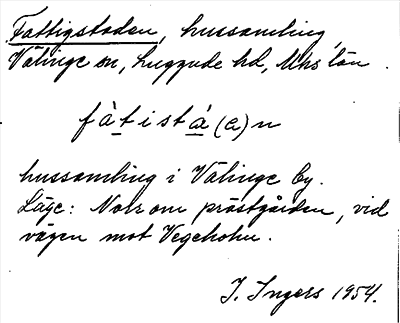 Fattigstaden, hussamling,
Välinge sn, Luggude hd, Mhs län.
fà t i st á (a) n
hussamling i Välinge by.
Läge: Norr om prästgården, vid
vägen mot Vegeholm.
I. Ingers 1954.